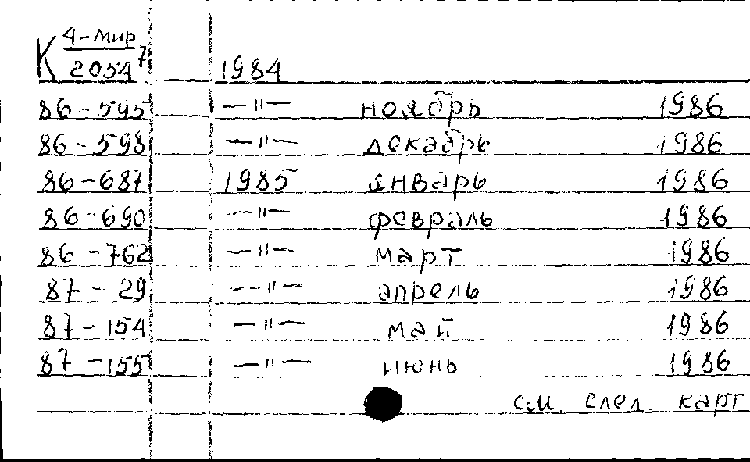 К 4-мир
2054 7 1984
86-595 —"— ноябрь 1986
86-598 —"— декабрь 1986
86-687 1985 январь 1986
86-690 —"— февраль 1986
86-762 —"— март 1986
87-29 —"— апрель 1986
87-154 —"— май 1986
87-155 —"— июнь 1986
см. след. карт